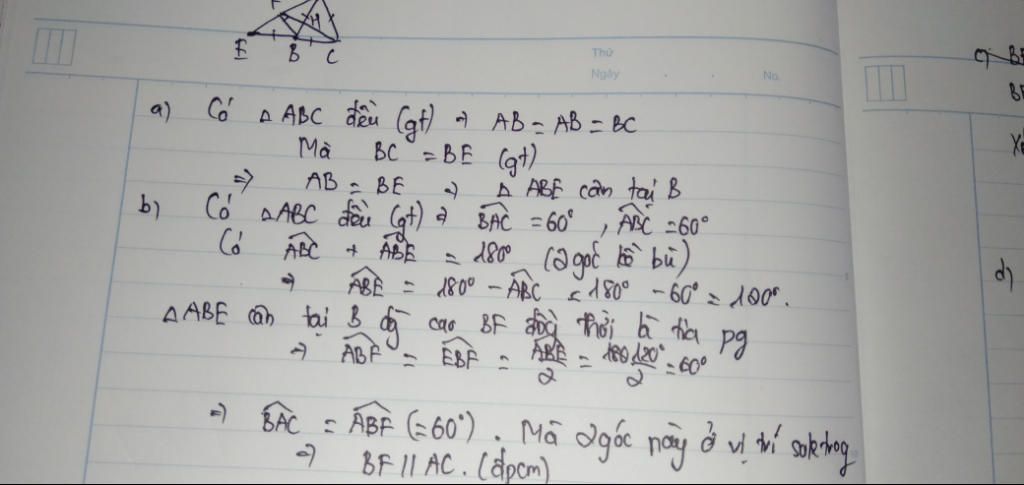 F
H
E B C
Thứ
Ngày . . No.
a) Có △ ABC đều (gt) ⇒ AB = AB = BC
Mà BC = BE (gt)
⇒ AB = BE ⇒ △ ABE cân tại B
b) Có △ABC đều (gt) ⇒ BAC = 60°, ABC = 60°
Có ABC + ABE = 180° (2 góc kề bù)
⇒ ABE = 180° - ABC = 180° - 60° = 120°.
△ABE cân tại B đg cao BF đồng thời là tia pg
⇒ ABF = EBF = ABE/2 = 120°/2 = 60°
⇒ BAC = ABF (=60°). Mà 2 góc này ở vị trí soletrog
⇒ BF // AC. (đpcm)
c) BE
d)